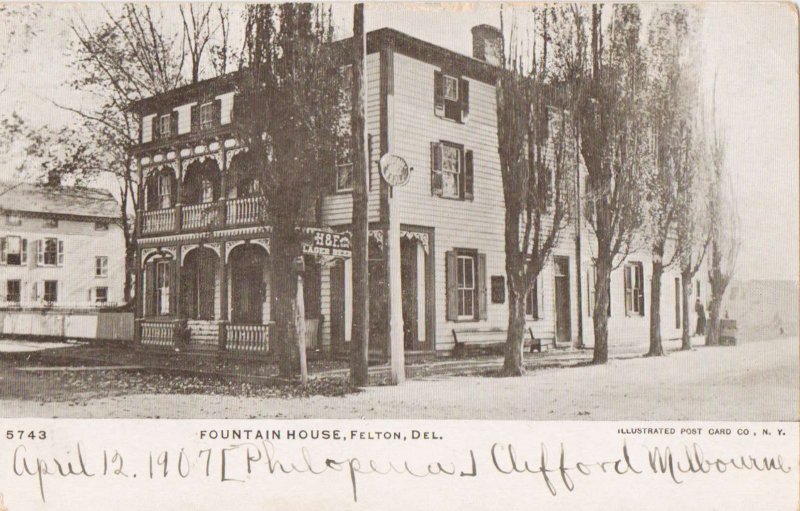 H&F.
LAGER BEER
5743
FOUNTAIN HOUSE, FELTON, DEL.
ILLUSTRATED POST CARD CO., N. Y.
April 12. 1907 [Philopena] Clifford Melbourne